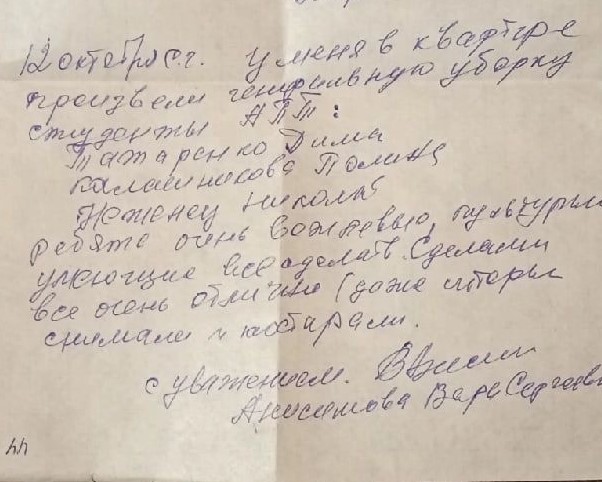 12 октября с.г. у меня в квартире
произвели генеральную уборку
студенты АПТ:
Татаренко Дима
Калашникова Полина
Неженец Николай
ребята очень вежливые, культурные
умеющие все сделать. Сделали
все очень отлично (даже шторы
снимали и постирали.
с уважением.
Анисимова Вера Сергеевн
44